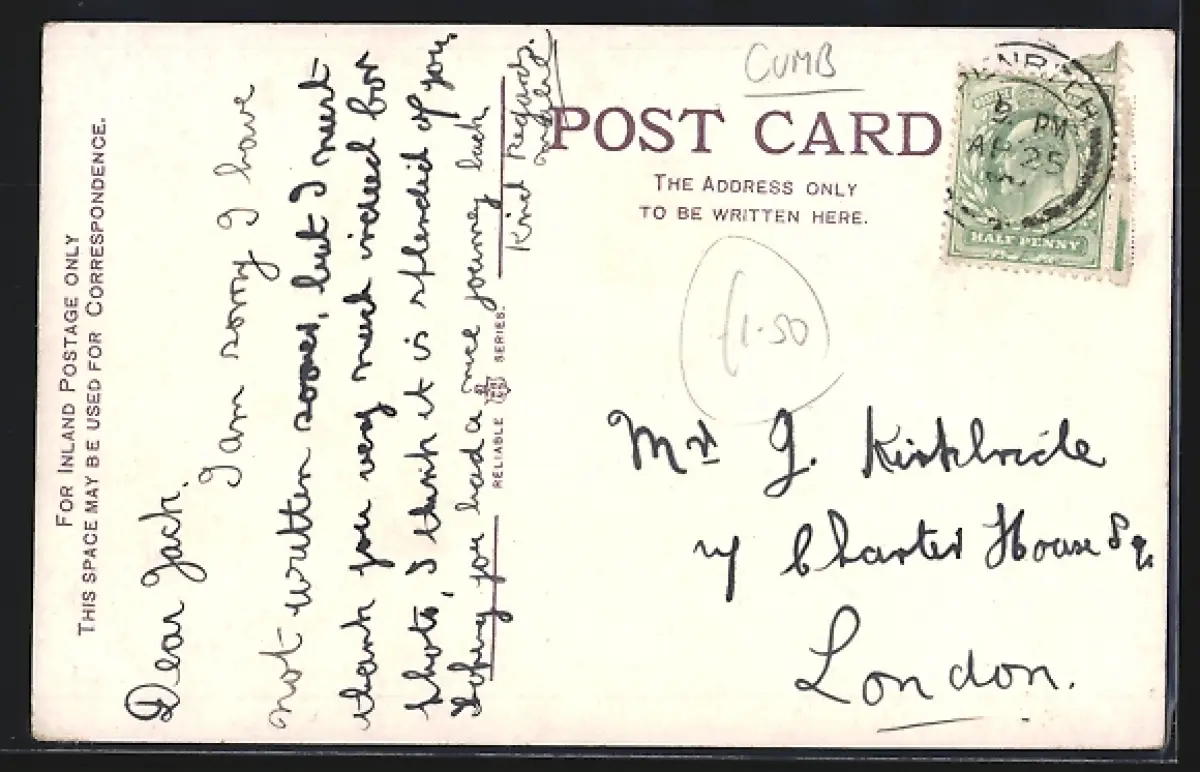 FOR INLAND POSTAGE ONLY
THIS SPACE MAY BE USED FOR CORRESPONDENCE.
Dear Jack.
I am sorry I have
not written sooner, but I must
thank you very much indeed for
photo, I think it is splendid of you.
Hoping you had a nice journey back
Kind Regards.
RELIABLE SERIES.
CUMB
POST CARD
THE ADDRESS ONLY
TO BE WRITTEN HERE.
£1.50
PENRITH
5 PM
AU 25
HALF PENNY
Mr J. Kirkbride
Charter House Sq.
London.